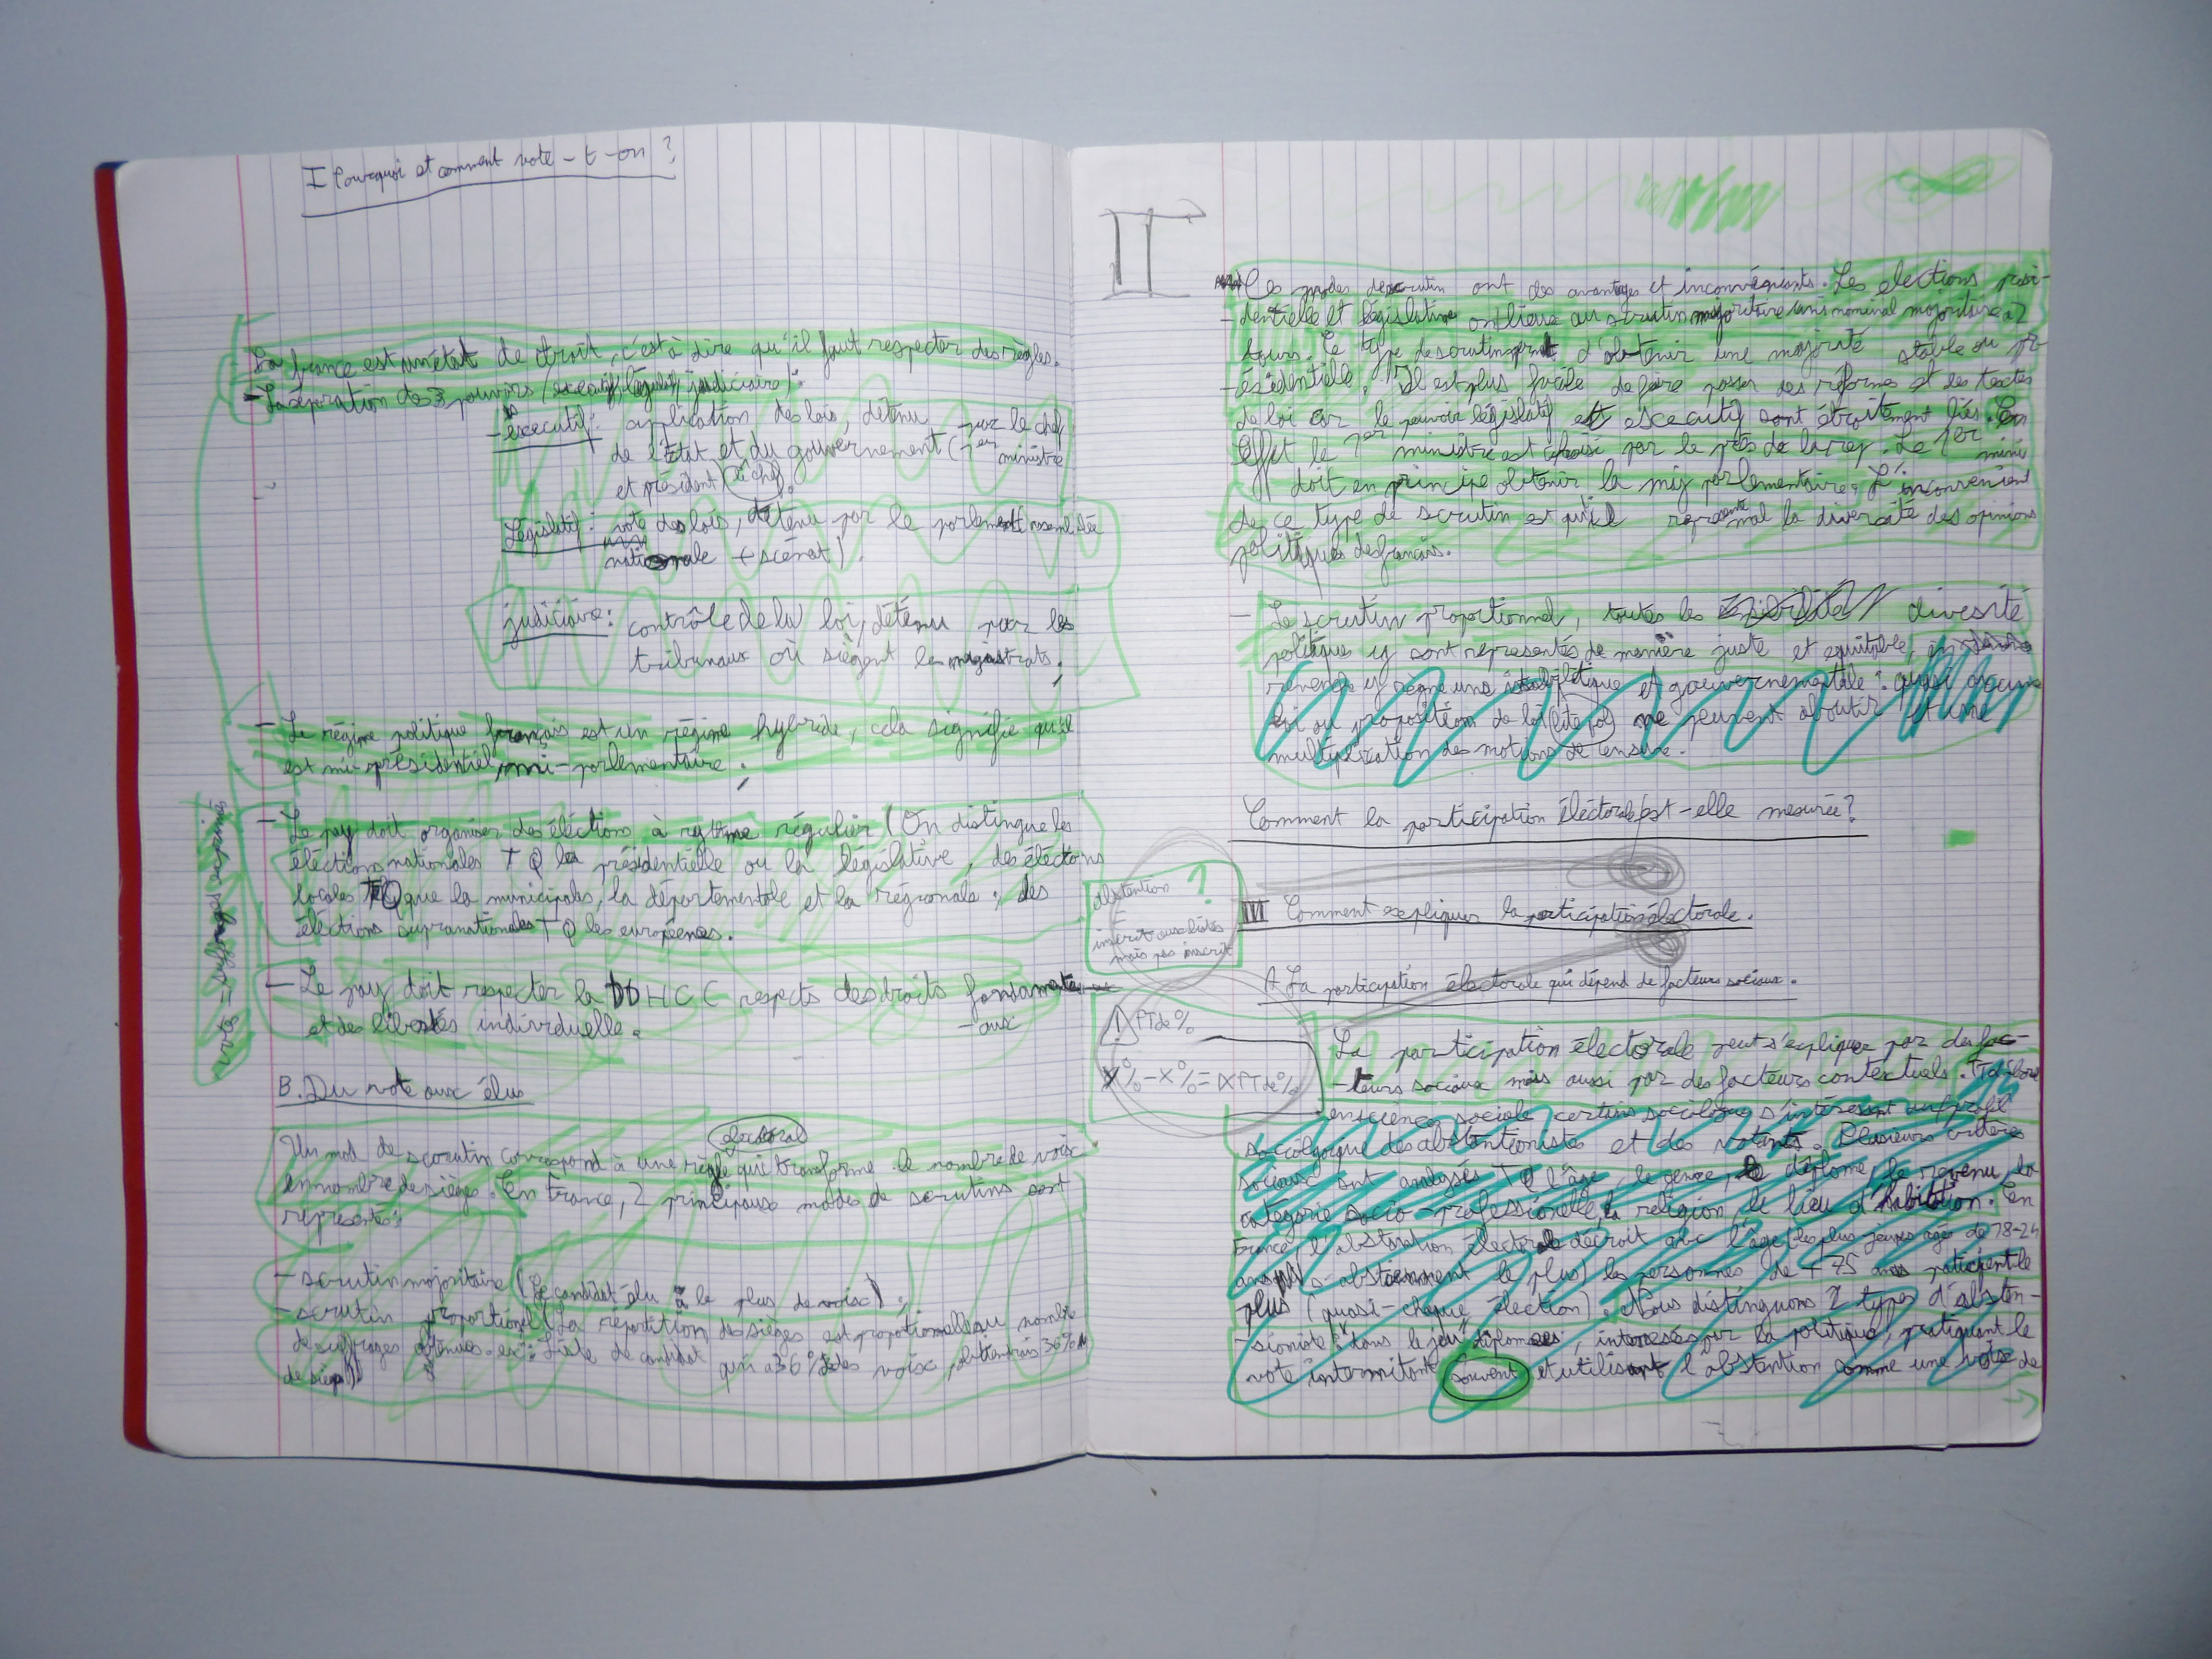 I Pourquoi et comment vote-t-on ?
La france est un état de droit, c'est à dire qu'il faut respecter des règles.
- La séparation des 3 pouvoirs (executif, législatif, judiciaire) :
- éxecutif : application des lois, détenu par le chef
de l'État et du gouvernement (1er ministre
et président) le chef.
Législatif : vote des lois, détenu par le parlement assemblée
nationale + scénat).
judiciaire : contrôle de la loi, détenu par les
tribunaux où siègent les magistrats.
- Le régime politique français est un régime hybride, cela signifie qu'il
est mi-présidentiel, mi-parlementaire.
- Le pay doit organiser des éléctions à rytme régulier (On distingue les
éléctions nationales T Q la présidentielle ou la législative, des éléctions
locales TQ que la municipales, la départementale et la régionale ; des
éléctions supranationales T Q les européenes.
- Le pay doit respecter la DDHCC respects des droits fondamenta
-aux
et des libertés individuelle.
B. Du vote aux élus
electoral
Un mod de scrutin correspond à une règle qui transforme le nombre de voix
en nombre de sièges. En France, 2 principaux modes de scrutins sont
representés :
- scrutin majoritaire (Le candidat élu a le plus de voix) ;
- scrutin proportionel (La répartition des sièges est propotionnelle au nombre
de suffrages obtenues. ex : Liste de candidat qui a 36% des voix, obtiendrais 36%
de sieges)
II
Ces modes de scrutin ont des avantages et inconvégniants. Les elections prési-
-dentielle et législative ont lieu au scrutin majoritaire uni nominal majoritaire à 2
tours. Ce type de scrutin permet d'obtenir une majorité stable ou pr-
-ésidentielle. Il est plus facile de faire passer des réformes et des textes
de loi car le pouvoir législatif et executif sont étroitement liés. En
effet le 1er ministre est choisi par le prés de la rep. Le 1er mini
doit en principe obtenir la maj parlementaire. L'inconvénient
de ce type de scrutin est qu'il represente mal la diversité des opinions
politiques des francais.
- Le scrutin proportionnel, toutes les diversité
politique y sont representés de manière juste et equitable, en
revenche y règne une instabilitique et gouvernementale : quasi aucune
loi ou proposition de loi ne peuvent aboutir et une
multiplication des motions de censure.
Comment la participation éléctorale est-elle mesurée ?
abstention ?
=
inscrit aux listes
mais pas inscrit
III Comment expliquer la participation éléctorale.
A La participation éléctorale qui dépend de facteurs sociaux.
! PT de %
X% - X% = X PT de %
La participation électorale peut s'expliquer par des fac-
-teurs sociaux mais aussi par des facteurs contextuels. Td'abord
en science sociale certains sociologue s'intéressent au profil
sociologique des abstentionistes et des votants. Plusieurs critères
sociaux sont analysés TQ l'âge, le genre, le diplôme, le revenu, la
categorie socio-professionelle, la religion, le lieu d'habitation. En
France, l'abstention électorale décroit avec l'âge (les plus jeunes âgés de 18-24
ans s-abstiennent le plus) les personnes de + 75 ans paticipent le
plus (quasi-chaque élection). Nous distinguons 2 types d'absten-
-sioniste : "dans le jeu" diplomées, interesés par la politique, pratiquant le
vote intermitent souvent et utilisant l'abstention comme une voix de